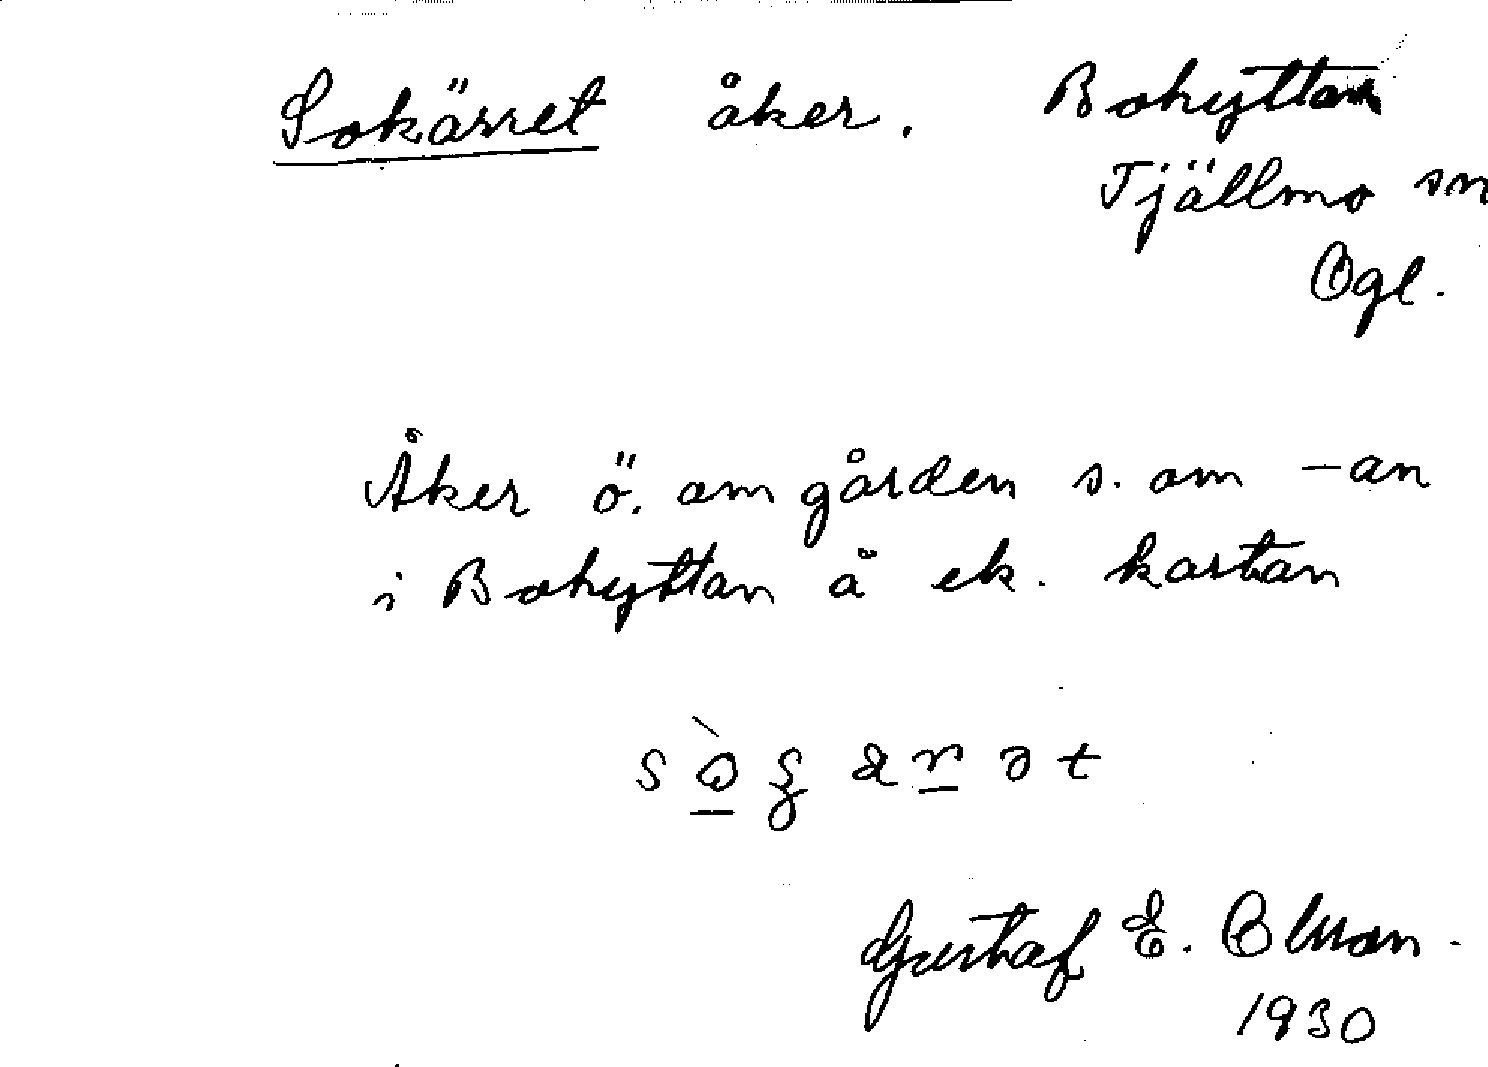 Sokärret åker. Bohyttan
Tjällmo sn
Ögl.
Åker ö. om gården s. om -an
i Bohyttan å ek. kartan
Gustaf E.
1930